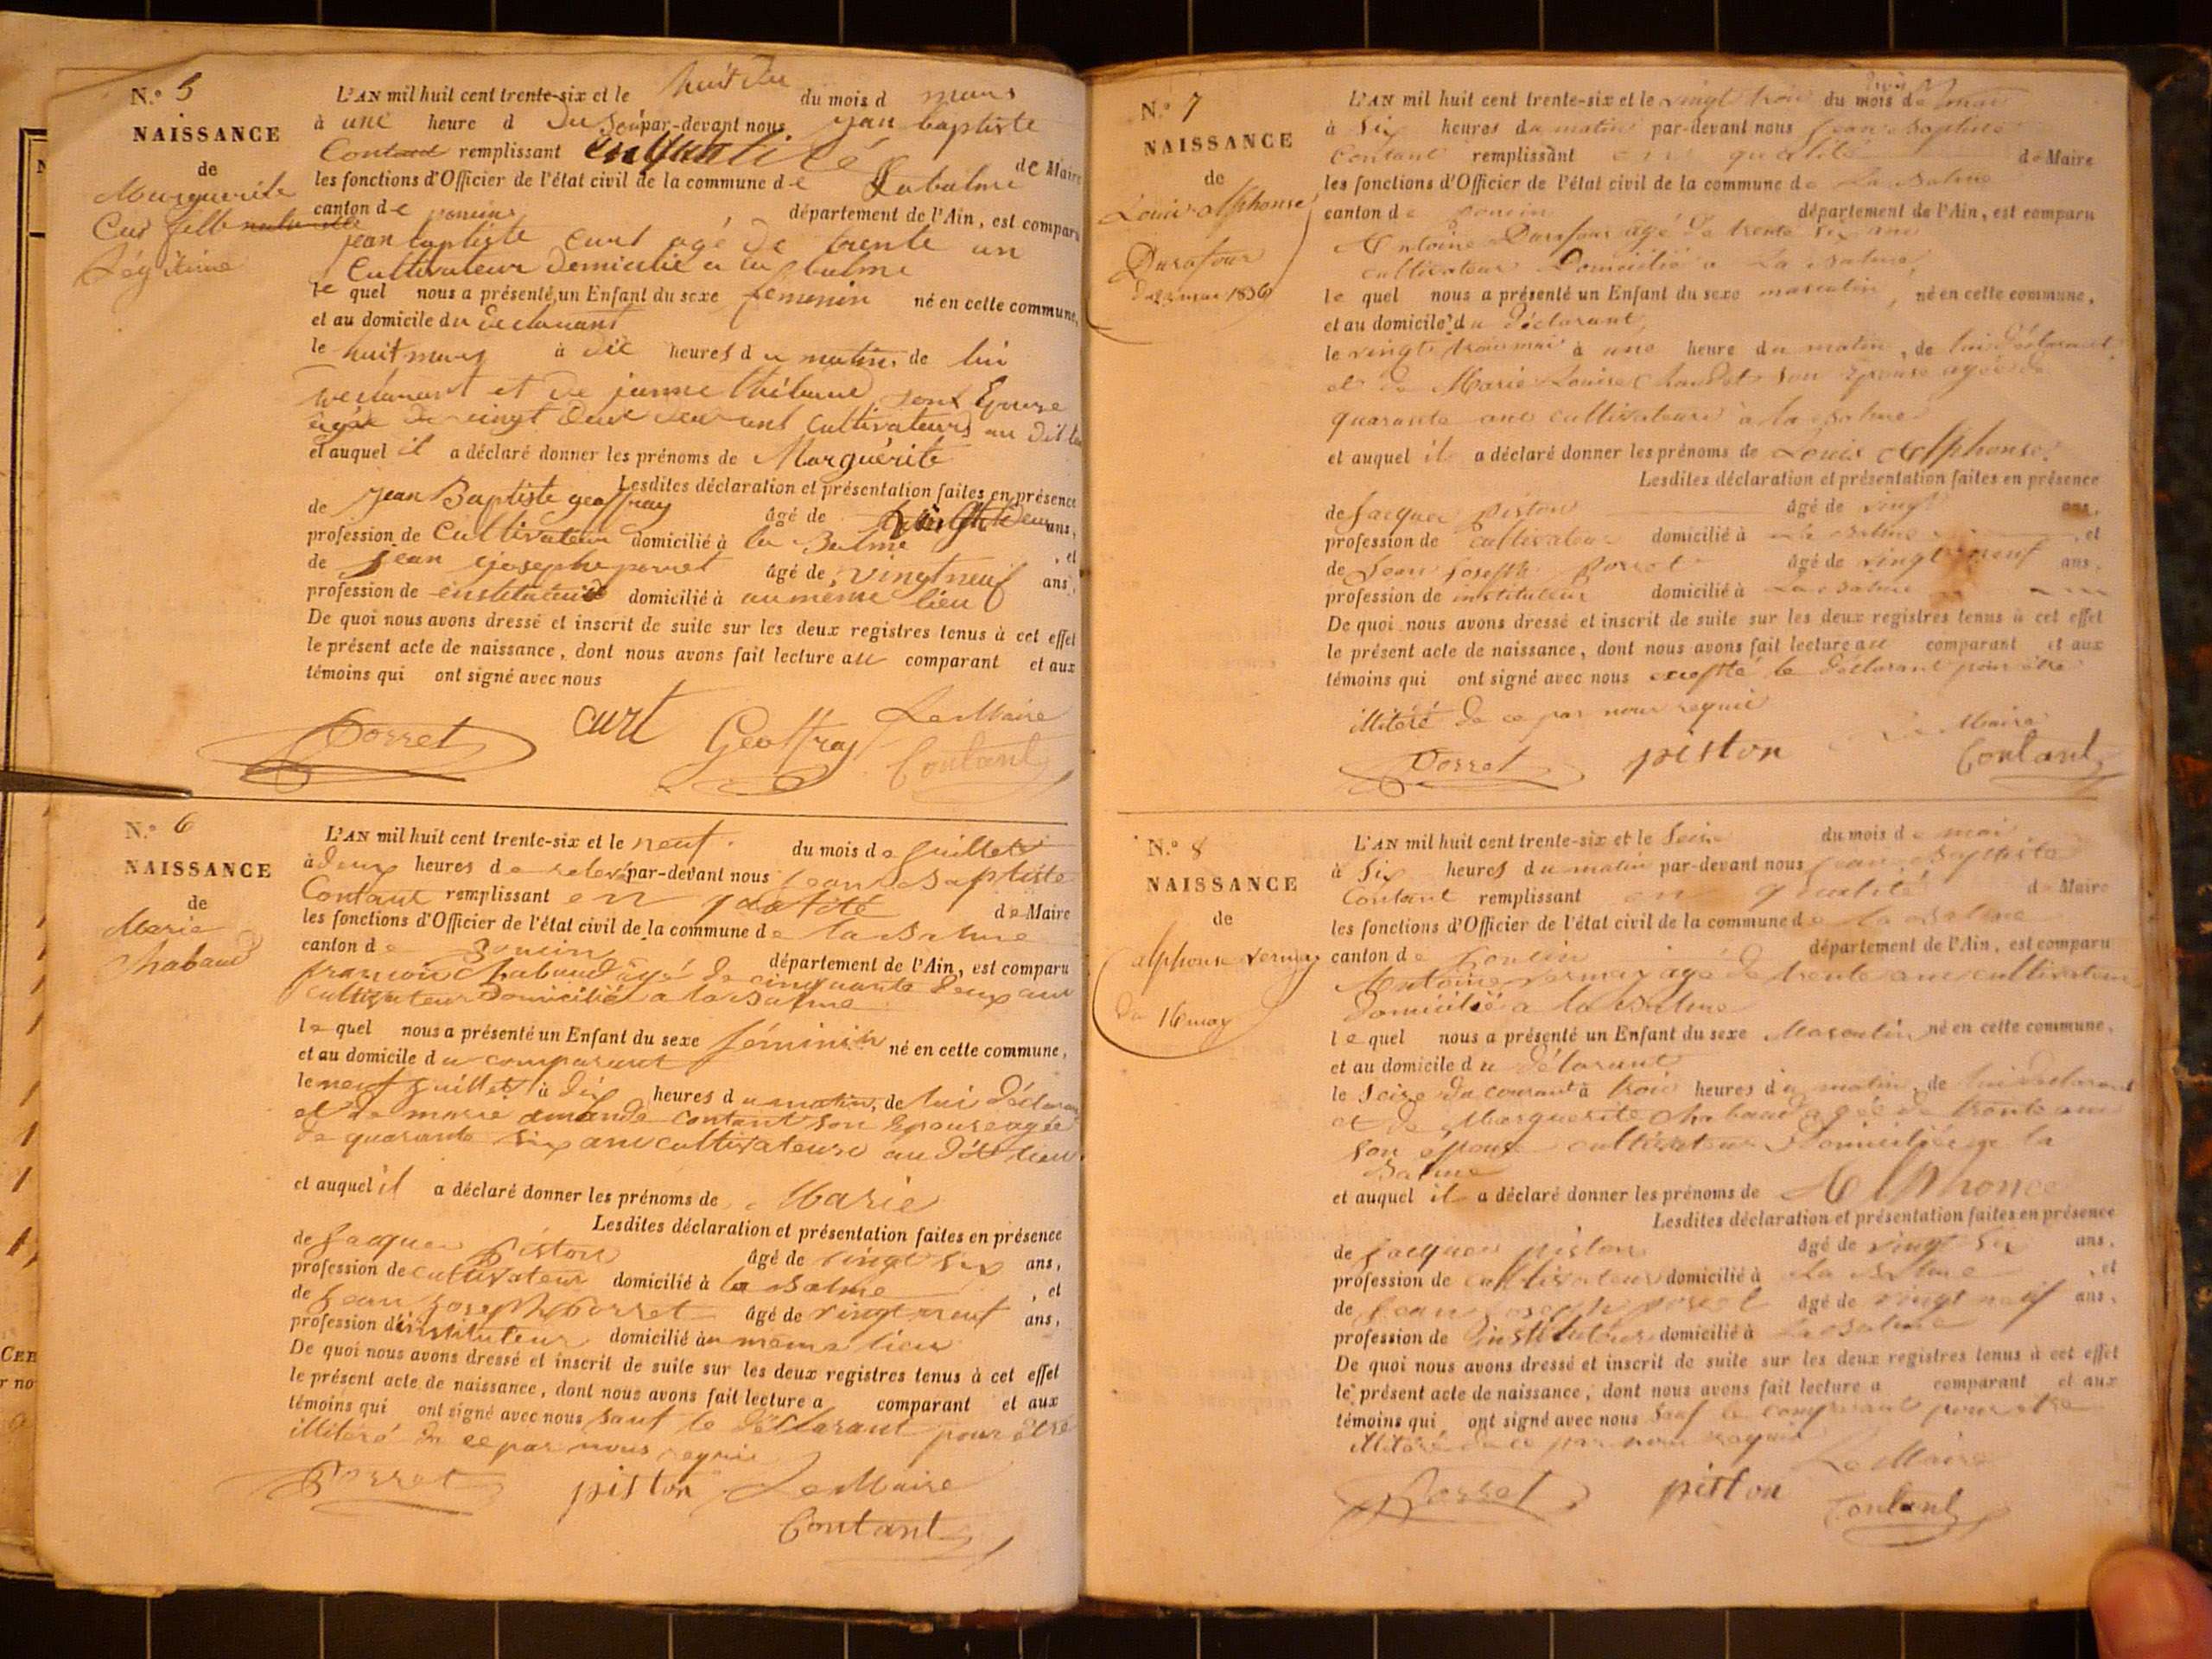 N.º 5
NAISSANCE
de
Marguerite
Curt fille naturelle
Légitime
L'AN mil huit cent trente-six et le huit du du mois d mars
à une heure d du Soir par-devant nous jean baptiste
Contant remplissant en qualité de Maire
les fonctions d'Officier de l'état civil de la commune de Labalme
canton de poncin département de l'Ain, est comparu
jean baptiste curt agé de trente an
cultivateur domicilié a la balme
le quel nous a présenté un Enfant du sexe femenin né en cette commune,
et au domicile du declarant
le huit mars à dix heures du matin, de lui
declarant et de jeanne thébaud sont Epouse
agée de vingt deux ans cultivateurs au dit lieu
et auquel il a déclaré donner les prénoms de Marguérite
Lesdites déclaration et présentation faites en présence
de jean Baptiste geoffray âgé de ans,
profession de Cultivateur domicilié à la Balme , et
de jean joseph porret âgé de vingt neuf ans,
profession de enstituteur domicilié à au même lieu
De quoi nous avons dressé et inscrit de suite sur les deux registres tenus à cet effet
le présent acte de naissance, dont nous avons fait lecture au comparant et aux
témoins qui ont signé avec nous
Porret curt Geoffray Le Maire
Contant
N.º 6
NAISSANCE
de
Marie
Chabaud
L'AN mil huit cent trente-six et le neuf du mois de juillet
à deux heures de relevé par-devant nous jean Baptiste
Contant remplissant en qualité de Maire
les fonctions d'Officier de l'état civil de la commune de la Balme
canton de Poncin département de l'Ain, est comparu
françois Chabaud âgé de cinquante deux ans
cultivateur domicilié a la Balme
le quel nous a présenté un Enfant du sexe féminin né en cette commune,
et au domicile du comparant
le neuf juillet à dix heures du matin, de lui déclarant
et de marie contant son épouse agée
de quarante six ans cultivateurs au dit lieu
et auquel il a déclaré donner les prénoms de Marie
Lesdites déclaration et présentation faites en présence
de jacques Piston âgé de vingt six ans,
profession de cultivateur domicilié à la Balme , et
de jean joseph Porret âgé de vingt neuf ans,
profession d'instituteur domicilié au même lieu
De quoi nous avons dressé et inscrit de suite sur les deux registres tenus à cet effet
le présent acte de naissance, dont nous avons fait lecture a comparant et aux
témoins qui ont signé avec nous sauf le déclarant pour être
illitéré de ce par nous requis
Porret piston Le Maire
Contant
N.º 7
NAISSANCE
de
Louis alphonse
Durafour
du 23 mai 1836
L'AN mil huit cent trente-six et le vingt trois du mois de mai
à Six heures du matin par-devant nous jean Baptiste
Contant remplissant en qualité de Maire
les fonctions d'Officier de l'état civil de la commune de La Balme
canton de poncin département de l'Ain, est comparu
Antoine Durafour agé de trente six ans
cultivateur Domicilié a La Balme,
le quel nous a présenté un Enfant du sexe masculin, né en cette commune,
et au domicile du déclarant,
le vingt trois mai à une heure du matin, de lui déclarant,
et de Marie Louise Chaudet son épouse agée de
quarante ans cultivateurs à la Balme
et auquel il a déclaré donner les prénoms de Louis Alphonse.
Lesdites déclaration et présentation faites en présence
de jacques piston âgé de vingt ans,
profession de cultivateur domicilié à La Balme , et
de Jean Joseph Porret âgé de vingt neuf ans,
profession de instituteur domicilié à La Balme
De quoi nous avons dressé et inscrit de suite sur les deux registres tenus à cet effet
le présent acte de naissance, dont nous avons fait lecture au comparant et aux
témoins qui ont signé avec nous excepté le déclarant pour être
illitéré de ce par nous requis
Le Maire
Porret piston Contant
N.º 8
NAISSANCE
de
alphonse Vernay
du 16 may
L'AN mil huit cent trente-six et le Seize du mois de mai
à Six heures du matin par-devant nous jean Baptiste
Contant remplissant en qualité de Maire
les fonctions d'Officier de l'état civil de la commune de la Balme
canton de Poncin département de l'Ain, est comparu
Antoine Vernay agé de trente ans cultivateur
domicilié a la Balme
le quel nous a présenté un Enfant du sexe Masculin né en cette commune,
et au domicile du délarant
le Seize du courant à trois heures du matin, de lui déclarant
et de Marguerite Chabaud agée de trente ans
son épouse cultivateurs Domiciliée a la
Balme
et auquel il a déclaré donner les prénoms de Alphonce
Lesdites déclaration et présentation faites en présence
de jacques piston âgé de vingt six ans,
profession de cultivateur domicilié à La Balme , et
de jean joseph porret âgé de vingt neuf ans,
profession de instituteur domicilié à La Balme
De quoi nous avons dressé et inscrit de suite sur les deux registres tenus à cet effet
le présent acte de naissance, dont nous avons fait lecture a comparant et aux
témoins qui ont signé avec nous sauf le comparant pour être
illitéré de ce par nous requis
Le Maire
Porret piston Contant